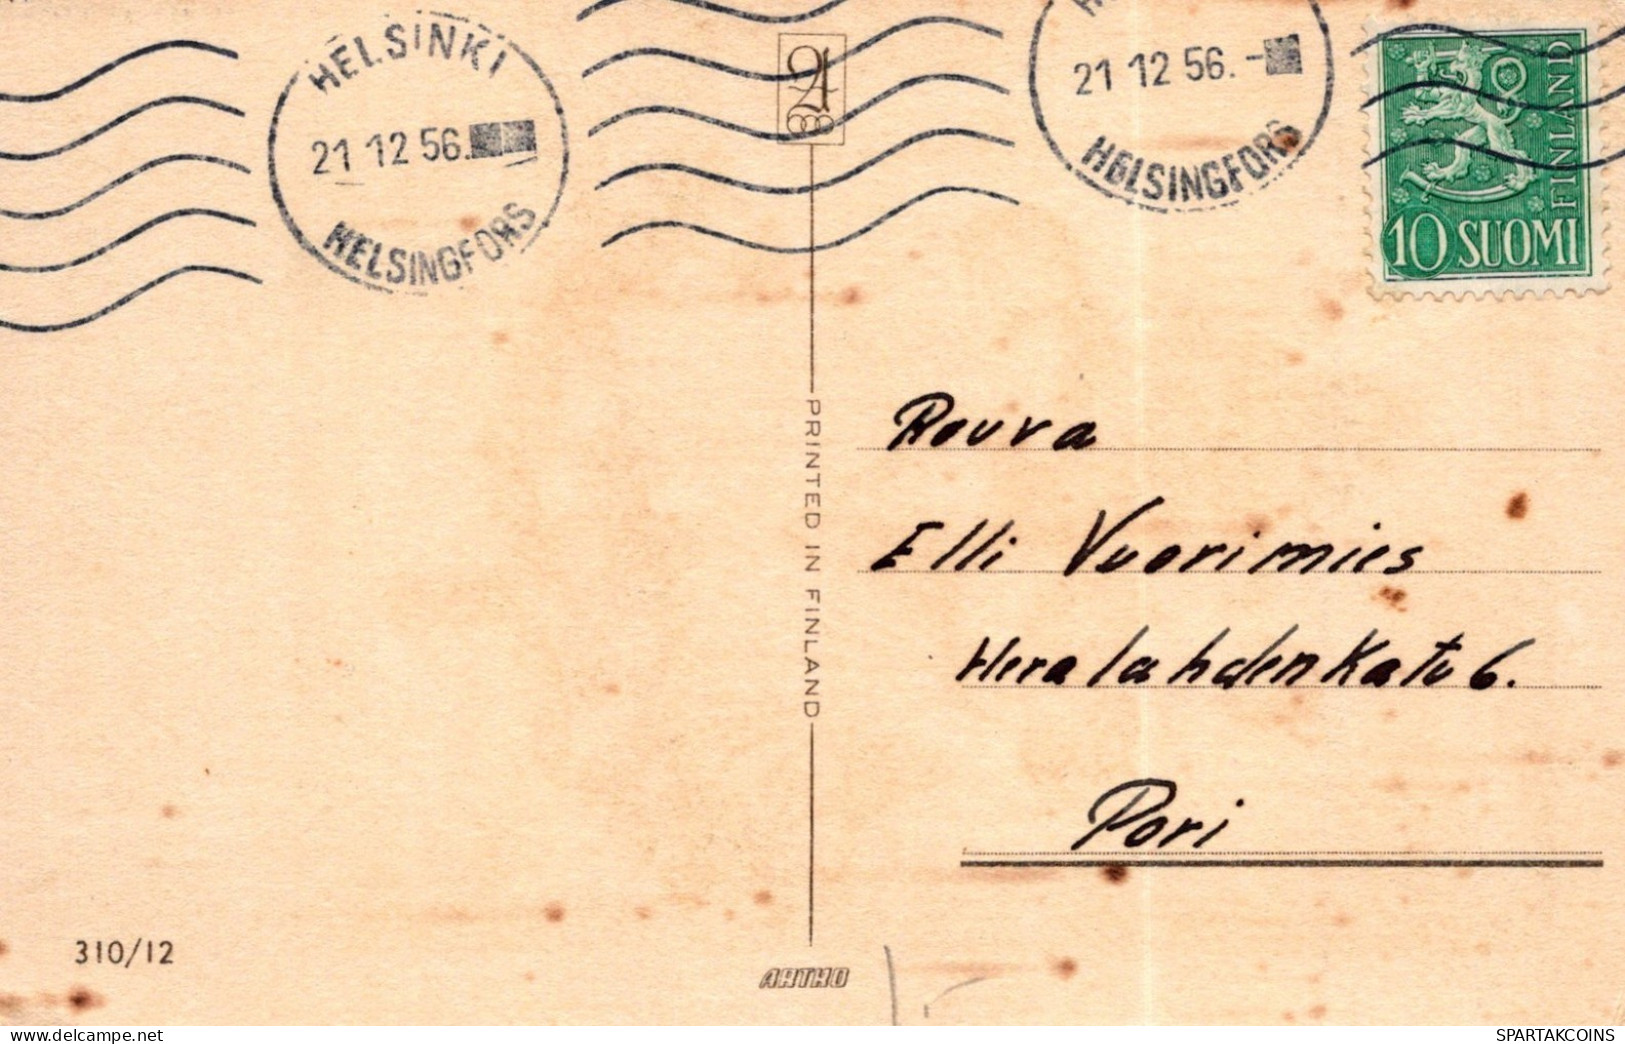 HELSINKI
21 12 56.
HELSINGFORS
21 12 56.-
HELSINGFORS
FINLAND
10 SUOMI
PRINTED IN FINLAND
Rouva
Elli Vuorimies
Heralahdenkatu 6.
Pori
310/12
ARTKO
delcampe.net
SPARTAKCOINS